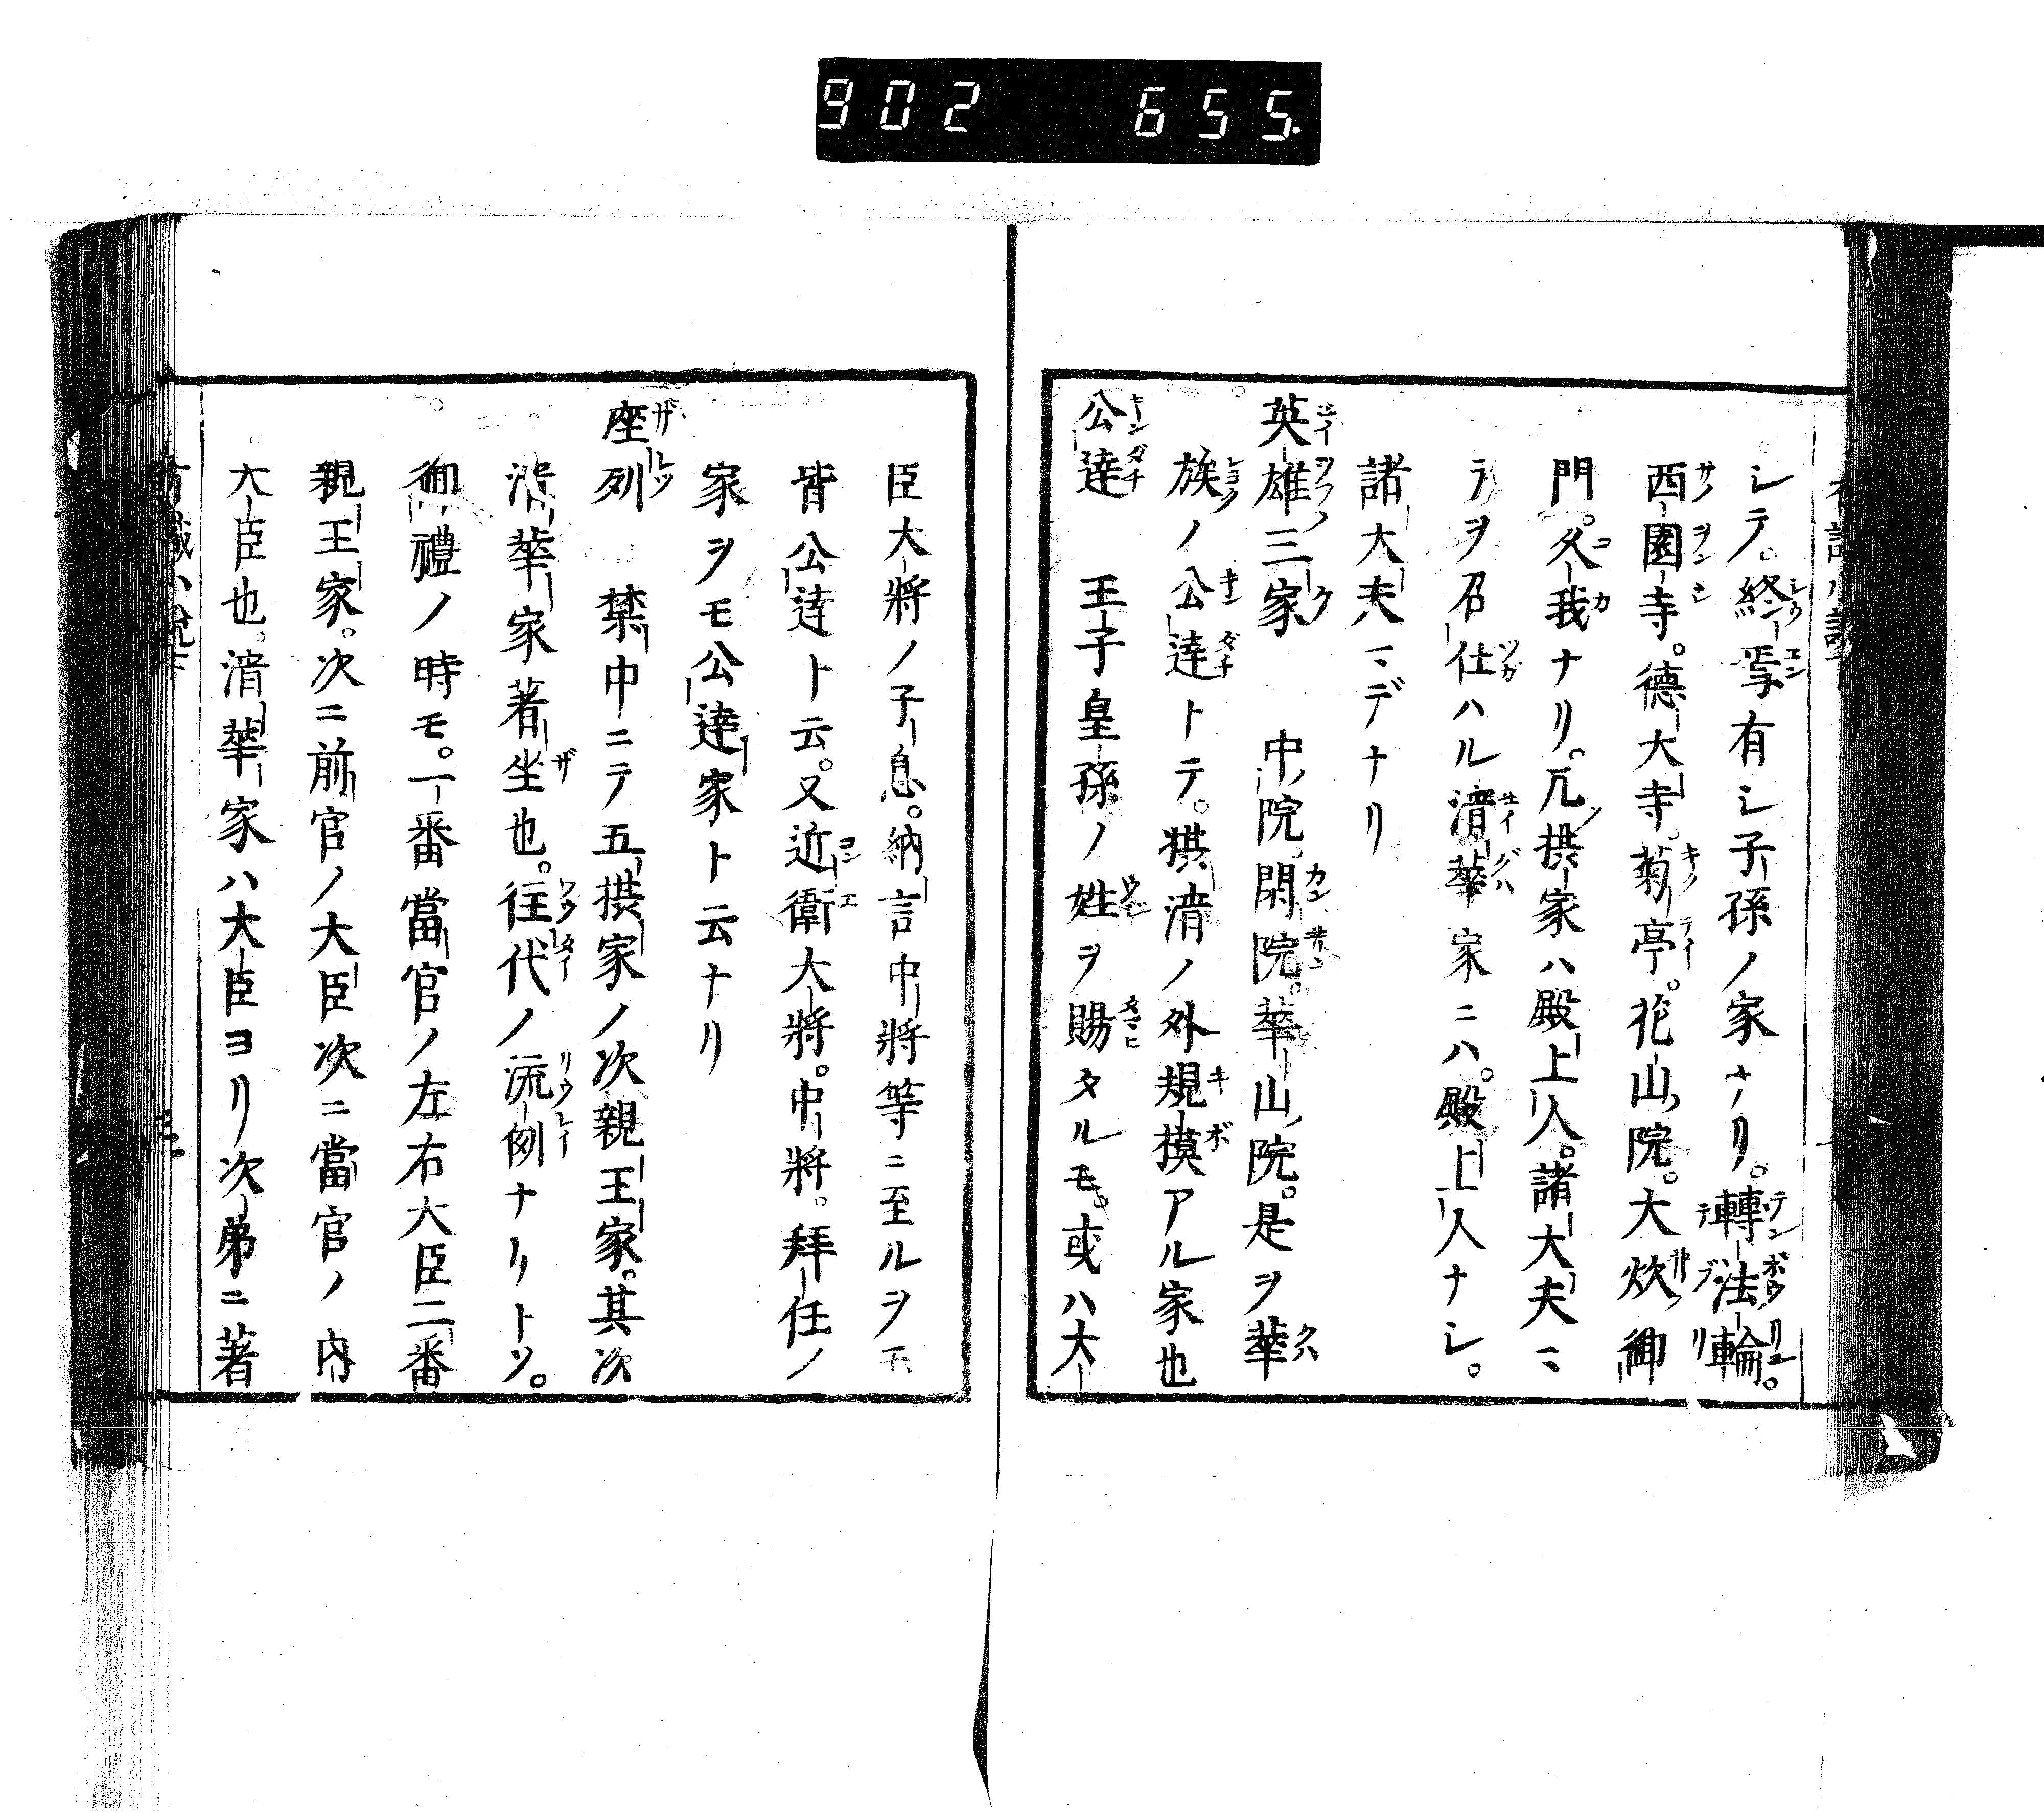 902 655
シテ。終焉有シ子孫ノ家ナリ。轉法輪。
西園寺。德大寺。菊亭。花山院。大炊御
門。久我ナリ。凡摂家ハ殿上人。諸大夫マ
デヲ召仕ハル清華家ニハ。殿上人ナシ。
諸大夫マデナリ
英雄三家 中院。閑院。華山院。是ヲ華
族ノ公達トテ。摂清ノ外規模アル家也
公達 王子皇孫ノ姓ヲ賜タルモ。或ハ大
臣大將ノ子息。納言中將等ニ至ルヲモ
皆公達ト云。又近衛大將。中將。拜任ノ
家ヲモ公達家ト云ナリ
座列 禁中ニテ五摂家ノ次親王家。其次
清華家著坐也。往代ノ流例ナリトソ。
御禮ノ時モ。一番當官ノ左右大臣二番
親王家。次ニ前官ノ大臣次ニ當官ノ內
大臣也。清華家ハ大臣ヨリ次第ニ著